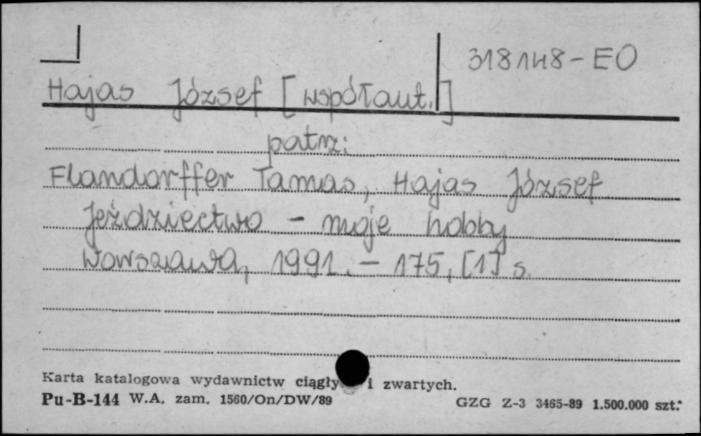 318148-EO
Hajas József [współaut.]
patrz:
Flandorffer Tamas, Hajas József
Jeździectwo - moje hobby
Warszawa, 1991. - 175, [1] s.
Karta katalogowa wydawnictw ciągły i zwartych.
Pu-B-144 W.A. zam. 1560/On/DW/89 GZG Z-3 3465-89 1.500.000 szt.